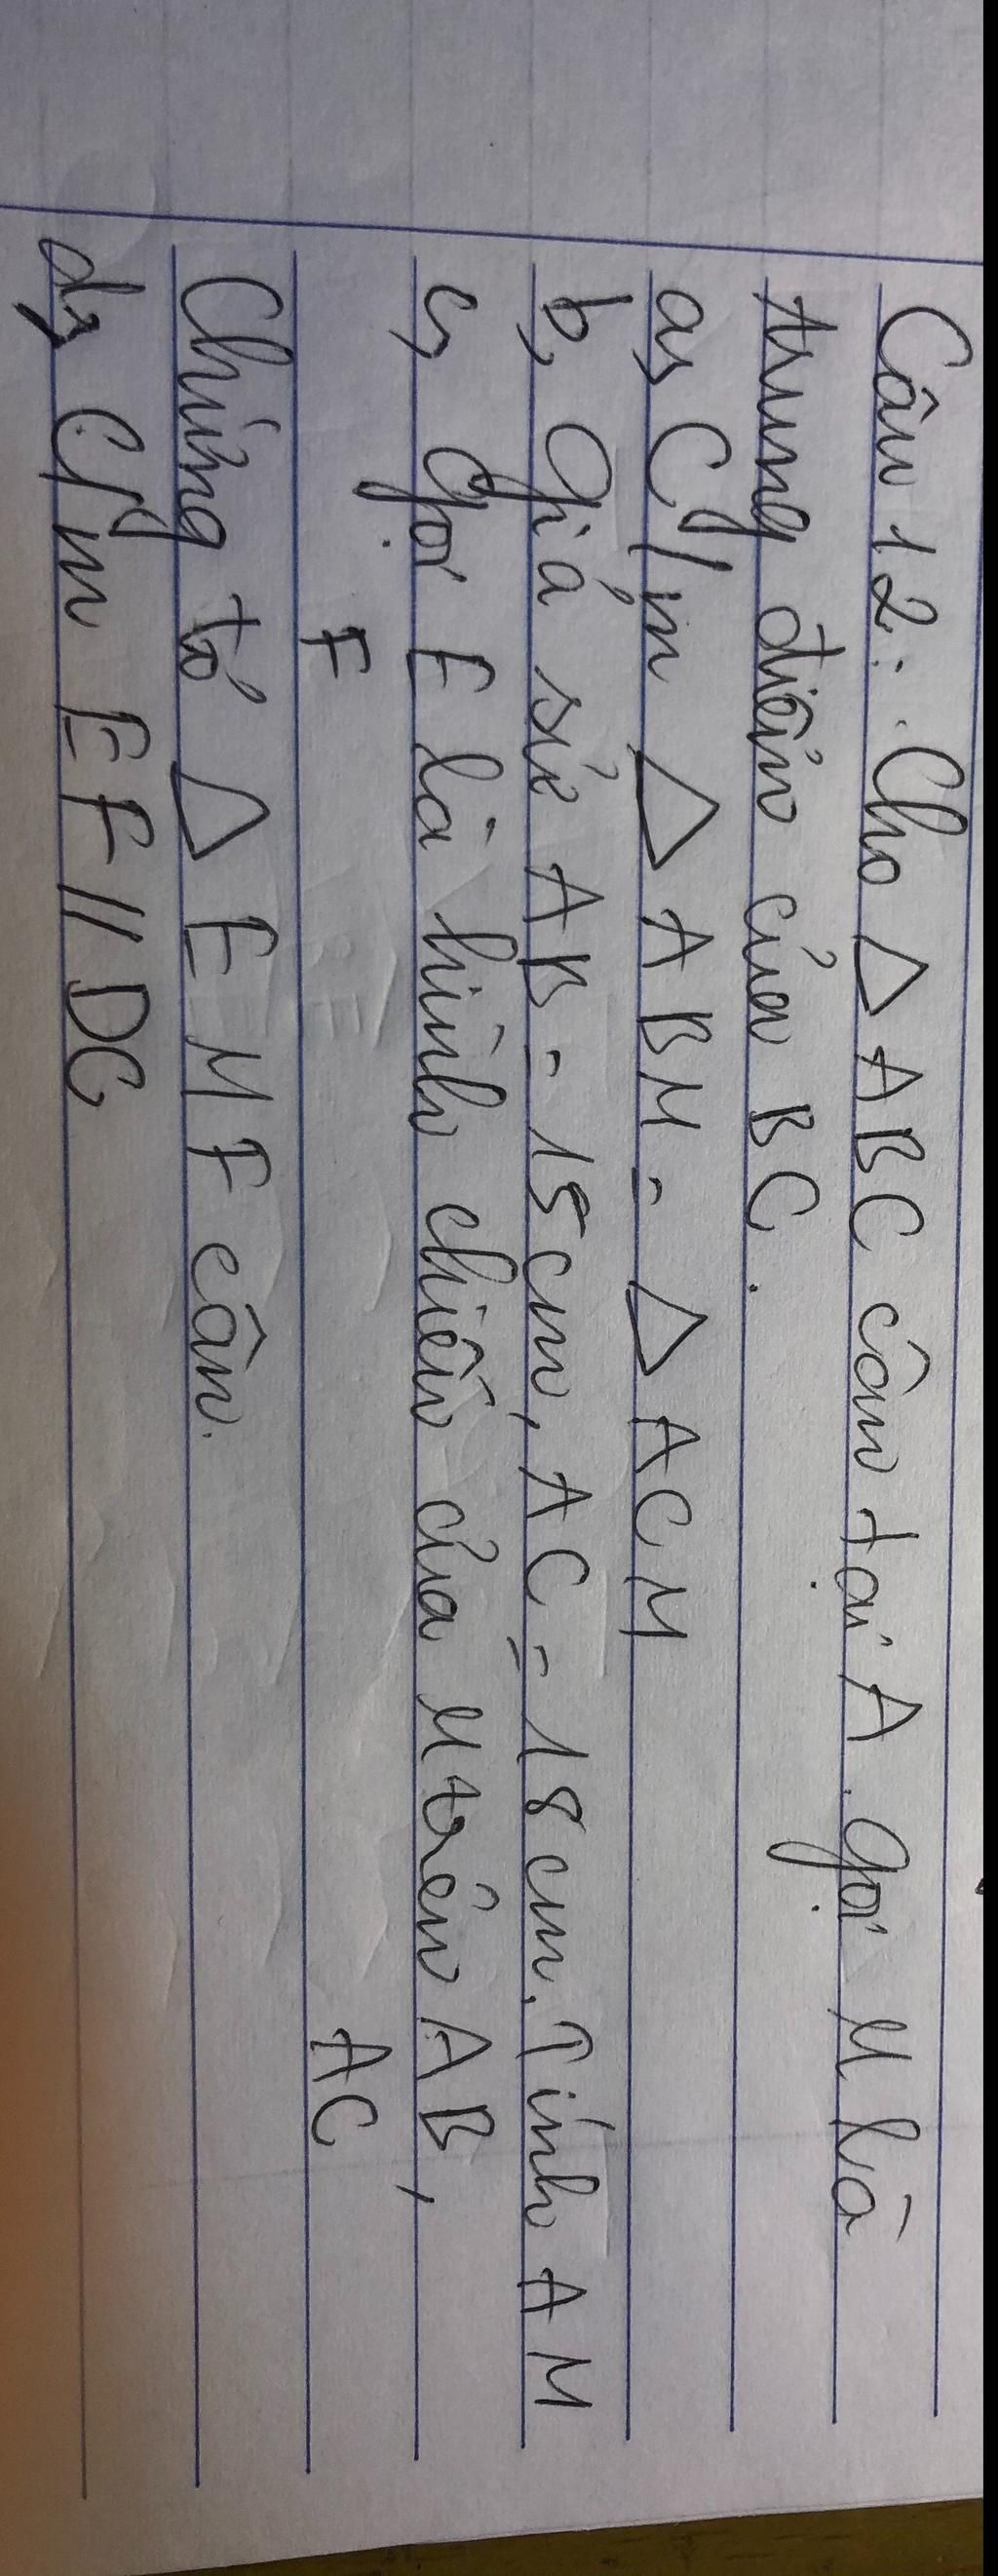 Câu 12: Cho △ ABC cân tại A. Gọi M là
trung điểm của BC.
a, C/m △ ABM = △ ACM
b, Giả sử AB = 15cm, AC = 18cm. Tính AM
c, Gọi E là hình chiếu của M trên AB,
F AC
Chứng tỏ △ EMF cân.
d, C/m EF // DC